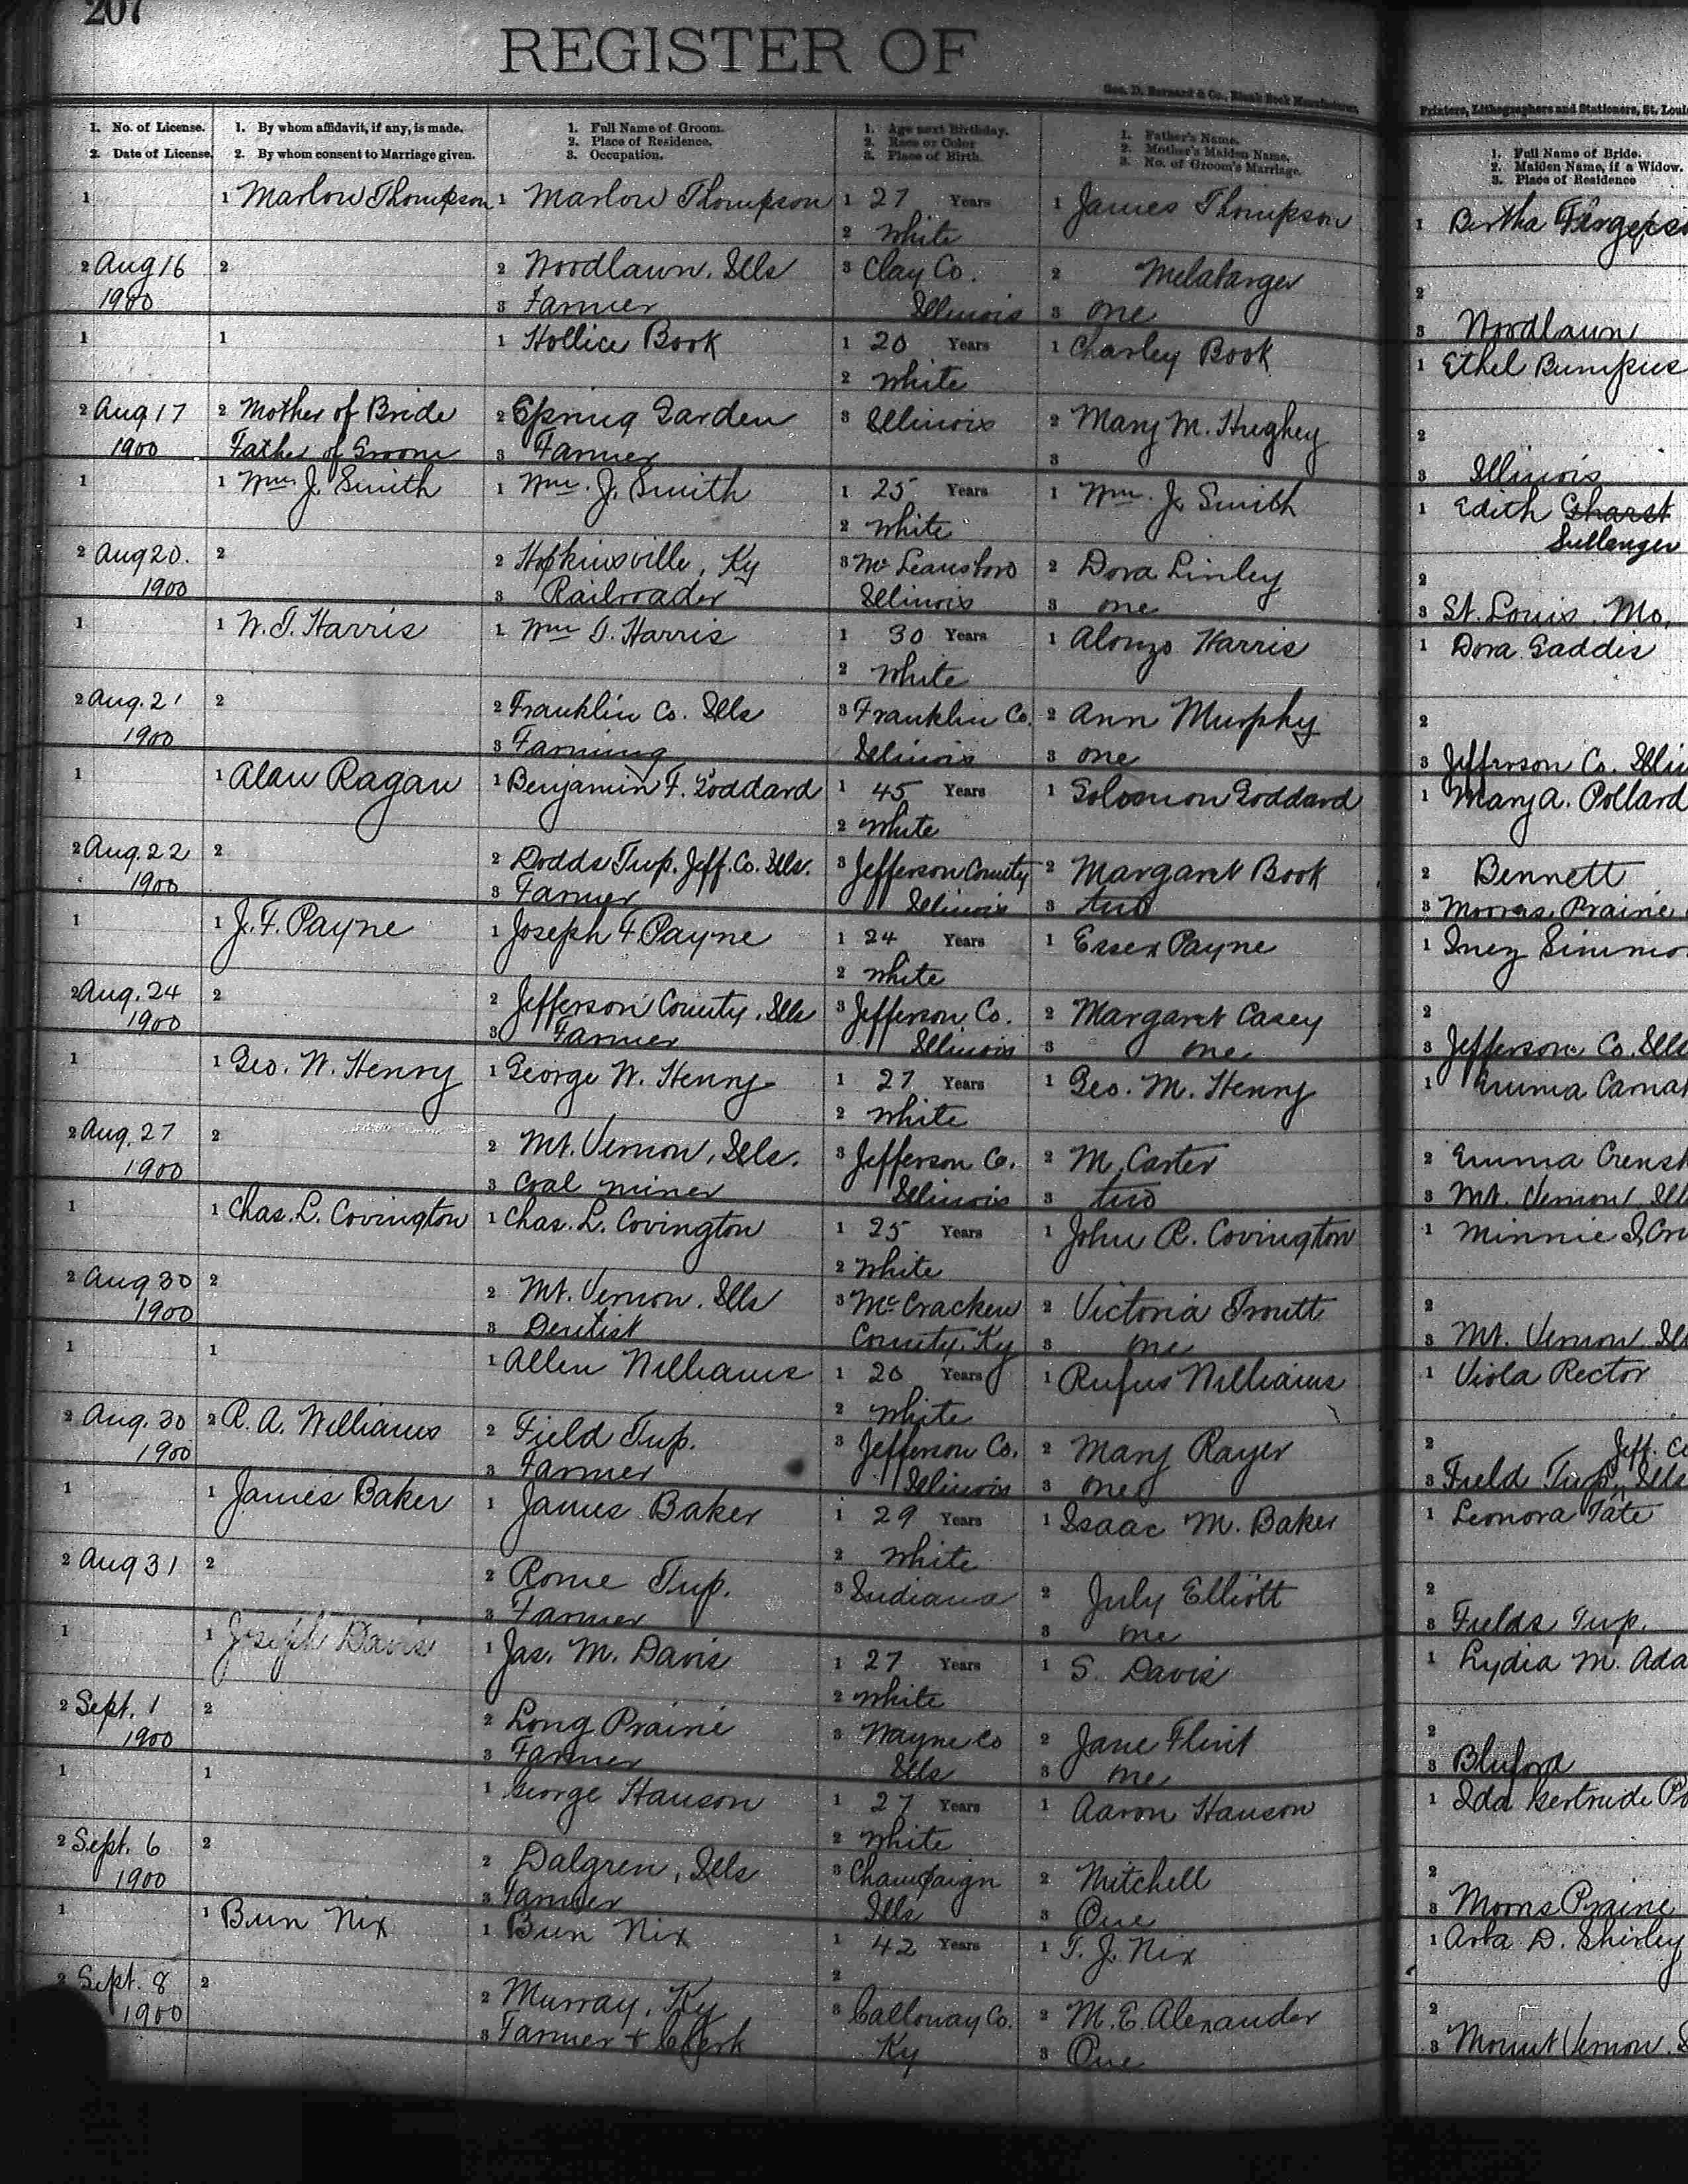 207
REGISTER OF
Geo. D. Barnard & Co., Blank Book Manufacturers,
Printers, Lithographers and Stationers, St. Loui
1. No. of License.
2. Date of License.
1. By whom affidavit, if any, is made.
2. By whom consent to Marriage given.
1. Full Name of Groom.
2. Place of Residence.
3. Occupation.
1. Age next Birthday.
2. Race or Color
3. Place of Birth.
1. Father's Name.
2. Mother's Maiden Name.
3. No. of Groom's Marriage.
1. Full Name of Bride.
2. Maiden Name, if a Widow.
3. Place of Residence
1
2 Aug 16
1900
1 Marlow Thompson
2
1 Marlow Thompson
2 Woodlawn, Ills
3 Farmer
1 27 Years
2 White
3 Clay Co.
Illinois
1 James Thompson
2 Melabarger
3 one
1 Bertha
2
3 Woodlawn
1
2 Aug 17
1900
1
2 Mother of Bride
Father of Groom
1 Hollice Book
2 Spring Garden
3 Farmer
1 20 Years
2 White
3 Illinois
1 Charley Book
2 Mary M. Hughey
3
1 Ethel Bumpus
2
3 Illinois
1
2 Aug 20.
1900
1 Wm. J. Smith
2
1 Wm. J. Smith
2 Hopkinsville, Ky
3 Railroader
1 25 Years
2 White
3 Mc Leansboro
Illinois
1 Wm. J. Smith
2 Dora Linley
3 one
1 Edith Gharst
Sullenger
2
3 St. Louis, Mo.
1
2 Aug. 21
1900
1 W. T. Harris
2
1 Wm T. Harris
2 Franklin Co. Ills
3 Farming
1 30 Years
2 White
3 Franklin Co.
Illinois
1 Alonzo Harris
2 Ann Murphy
3 one
1 Dora Gaddis
2
3 Jefferson Co. Illi
1
2 Aug. 22
1900
1 Alan Ragan
2
1 Benjamin F. Goddard
2 Dodds Twp. Jeff. Co. Ills.
3 Farmer
1 45 Years
2 White
3 Jefferson County
Illinois
1 Solomon Goddard
2 Margaret Book
3 two
1 Mary A. Pollard
2 Bennett
3 Moores Prairie
1
2 Aug. 24
1900
1 J. F. Payne
2
1 Joseph F Payne
2 Jefferson County, Ills
3 Farmer
1 24 Years
2 White
3 Jefferson Co.
Illinois
1 Essex Payne
2 Margaret Casey
3 one
1 Inez Simmo
2
3 Jefferson Co. Ills
1
2 Aug. 27
1900
1 Geo. W. Henry
2
1 George W. Henry
2 Mt. Vernon, Ills.
3 Coal miner
1 27 Years
2 White
3 Jefferson Co.
Illinois
1 Geo. M. Henry
2 M. Carter
3 two
1 Emma Carna
2 Emma Crens
3 Mt. Vernon Ill
1
2 Aug 30
1900
1 Chas. L. Covington
2
1 Chas. L. Covington
2 Mt. Vernon, Ills
3 Dentist
1 25 Years
2 White
3 McCracken
County, Ky
1 John R. Covington
2 Victoria Troutt
3 one
1 Minnie
2
3 Mt. Vernon, Ill
1
2 Aug. 30
1900
1
2 R. A. Williams
1 Allen Williams
2 Field Twp.
3 Farmer
1 20 Years
2 White
3 Jefferson Co.
Illinois
1 Rufus Williams
2 Mary Rayer
3 one
1 Viola Rector
2 Jeff. Co
3 Field Twp., Ills
1
2 Aug 31
1 James Baker
2
1 James Baker
2 Rome Twp.
3 Farmer
1 29 Years
2 White
3 Indiana
1 Isaac M. Baker
2 July Elliott
3 one
1 Leonora Tate
2
3 Fields Twp.
1
2 Sept. 1
1900
1 Joseph Davis
2
1 Jas. M. Davis
2 Long Prairie
3 Farmer
1 27 Years
2 White
3 Wayne Co
Ills
1 S. Davis
2 Jane Flint
3 one
1 Lydia M. Ada
2
3 Bluford
1
2 Sept. 6
1900
1
2
1 George Hanson
2 Dalgren, Ills
3 Farmer
1 27 Years
2 White
3 Champaign
Ills
1 Aaron Hanson
2 Mitchell
3 One
1 Ida Gertrude Po
2
3 Moores Prairie
1
2 Sept. 8
1900
1 Bun Nix
2
1 Bun Nix
2 Murray, Ky
3 Farmer & Clerk
1 42 Years
2
3 Calloway Co.
Ky
1 T. J. Nix
2 M. E. Alexander
3 One
1 Arta D. Shirley
2
3 Mount Vernon,